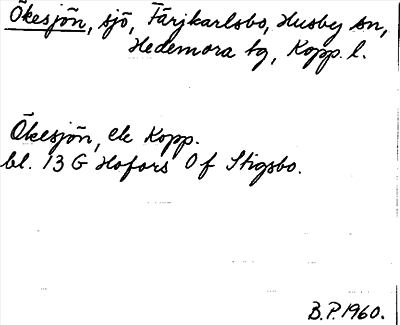 Ökesjön, sjö, Färjkarlsbo, Husby sn,
Hedemora tg, Kopp. l.
Ökesjön, ek Kopp.
bl. 13 G Hofors 0 f Stigsbo.
B.P. 1960.